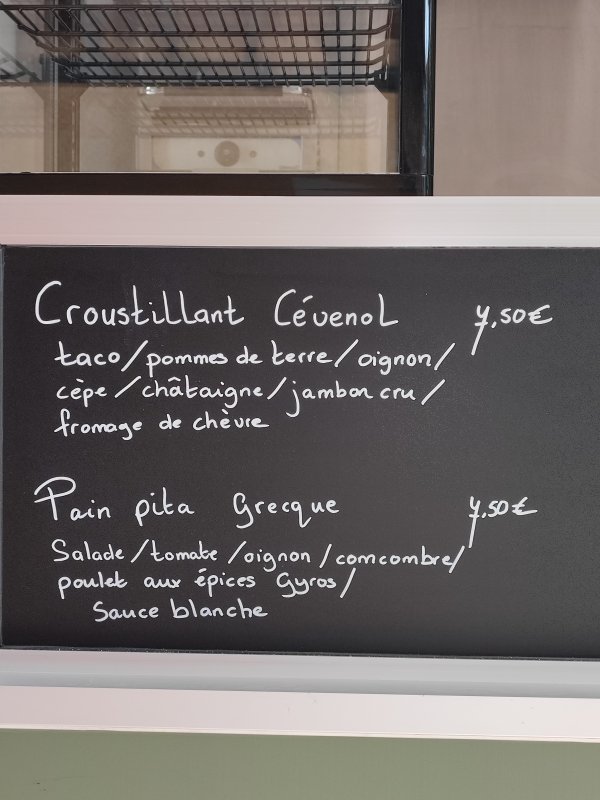 Croustillant Cévenol 7,50€
taco/pommes de terre/oignon/
cèpe/châtaigne/jambon cru/
fromage de chèvre
Pain pita Grecque 7,50€
Salade/tomate/oignon/comcombre/
poulet aux épices Gyros/
Sauce blanche